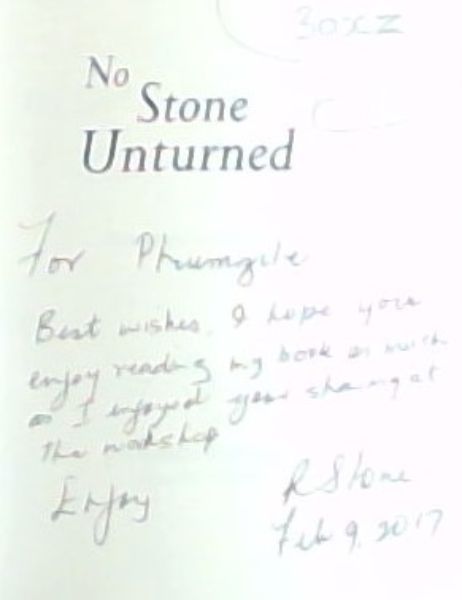 30xZ
No
Stone
Unturned
For Phumzile
Best wishes. I hope you
enjoy reading my book as much
as I enjoyed your sharing at
the workshop
Enjoy
R Stone
Feb 9, 2017